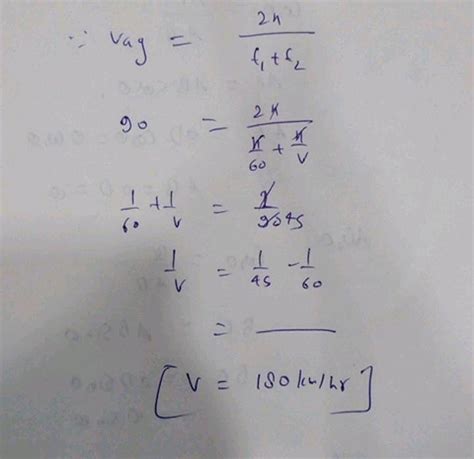 ∵ Vag = 2x / t₁ + t₂
90 = 2x / x/60 + x/V
1/60 + 1/V = 2/90 45
1/V = 1/45 - 1/60
= ———
[ V = 180 km/hr ]